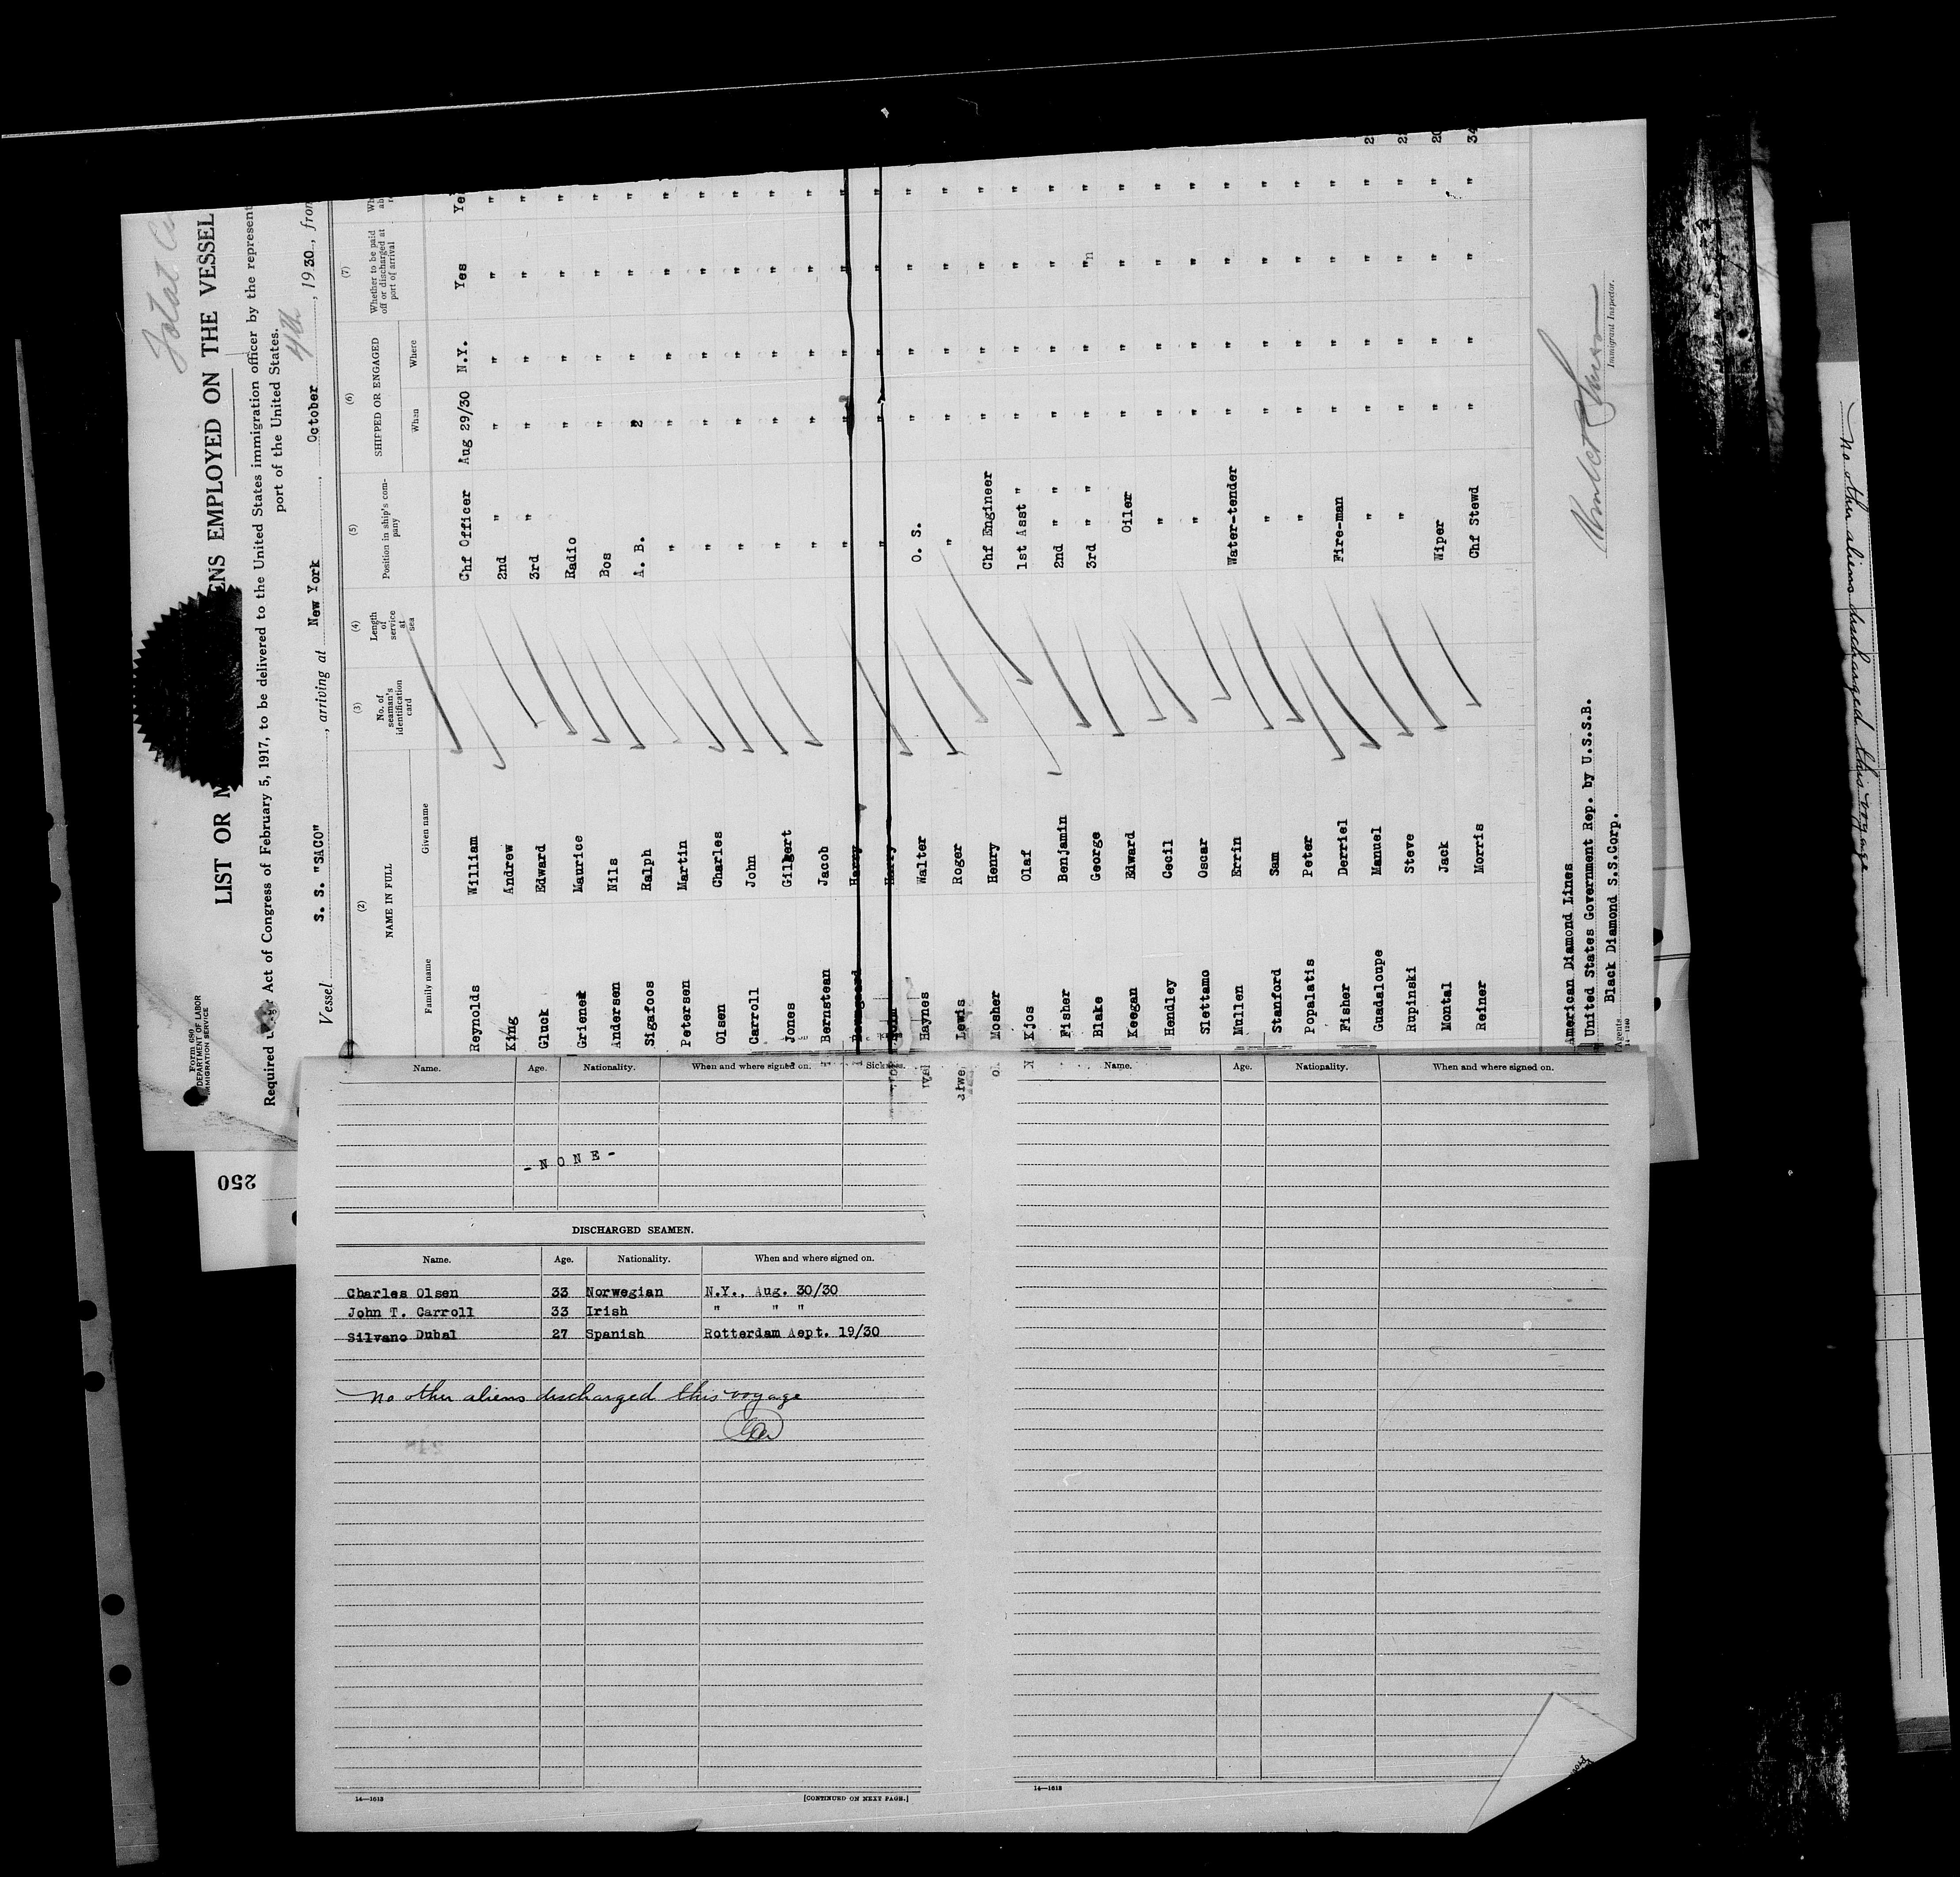 Total
LIST OR M ENS EMPLOYED ON THE VESSEL
Form 680
DEPARTMENT OF LABOR
IMMIGRATION SERVICE
Required under Act of Congress of February 5, 1917, to be delivered to the United States immigration officer by the represent
port of the United States.
Vessel S. S. "SACO", arriving at New York, October 4th, 1930, from
(2) (3) (4) (5) (6) (7)
NAME IN FULL No. of seaman's identification card Length of service at sea Position in ship's company SHIPPED OR ENGAGED Whether to be paid off or discharged at port of arrival
Family name Given name When Where
Reynolds William Chf Officer Aug 29/30 N.Y. Yes Ye
King Andrew 2nd " " " " "
Gluck Edward 3rd " " " " "
Maurice Radio " " " "
Andersen Nils Bos " " " "
Sigafoos Ralph A. B. " " " "
Petersen Martin " " " " "
Olsen Charles " " " " "
Carroll John " " " " "
Jones Gilbert " " " " "
Bernstean Jacob " " " " "
Harry " " " " "
Harry " " " " "
Haynes Walter O. S. " " " "
Lewis Roger " " " " "
Mosher Henry Chf Engineer " " " "
Kjos Olaf 1st Asst " " " " "
Fisher Benjamin 2nd " " " " " "
Blake George 3rd " " " " " "
Keegan Edward Oiler " " " "
Hendley Cecil " " " " "
Slettamo Oscar " " " " "
Mullen Errin Water-tender " " " "
Stanford Sam " " " " "
Popalatis Peter " " " " "
Fisher Derriel Fire-man " " " "
Guadaloupe Manuel " " " " " 2
Rupinski Steve " " " " " 2
Montal Jack Wiper " " " " 20
Reiner Morris Chf Stewd " " " " 34
American Diamond Lines
United States Government Rep. by U.S.S.B.
Black Diamond S.S.Corp.
Agents
Immigrant Inspector.
250
Name. Age. Nationality. When and where signed on. Sickness.
-NONE-
DISCHARGED SEAMEN.
Name. Age. Nationality. When and where signed on.
Charles Olsen 33 Norwegian N.Y., Aug. 30/30
John T. Carroll 33 Irish " " "
Silvano Dubal 27 Spanish Rotterdam Aept. 19/30
No other aliens discharged this voyage
14—1613
[CONTINUED ON NEXT PAGE.]
Name. Age. Nationality. When and where signed on.
14—1613
No other aliens discharged this voyage